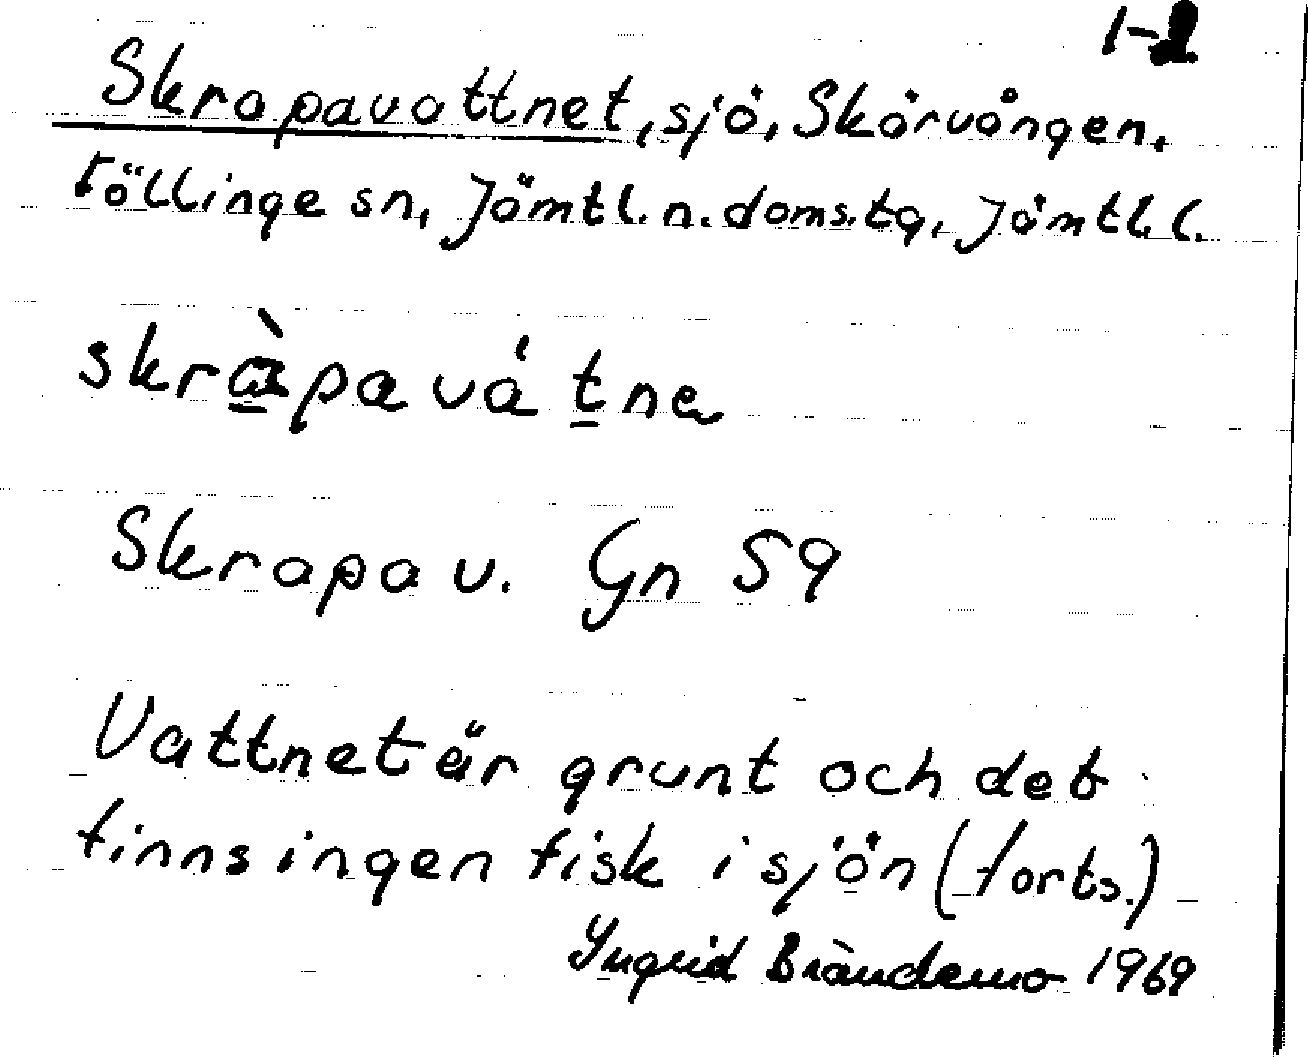 1-2
Skrapavattnet, sjö, Skärvången,
Föllinge sn, Jämtl. n. doms.tg, Jämtl. l.
skrà̱pavát̠ne
Skrapav. Gn 59
Vattnet är grunt och det
finns ingen fisk i sjön (forts.)
Yngvid Brändemo 1969